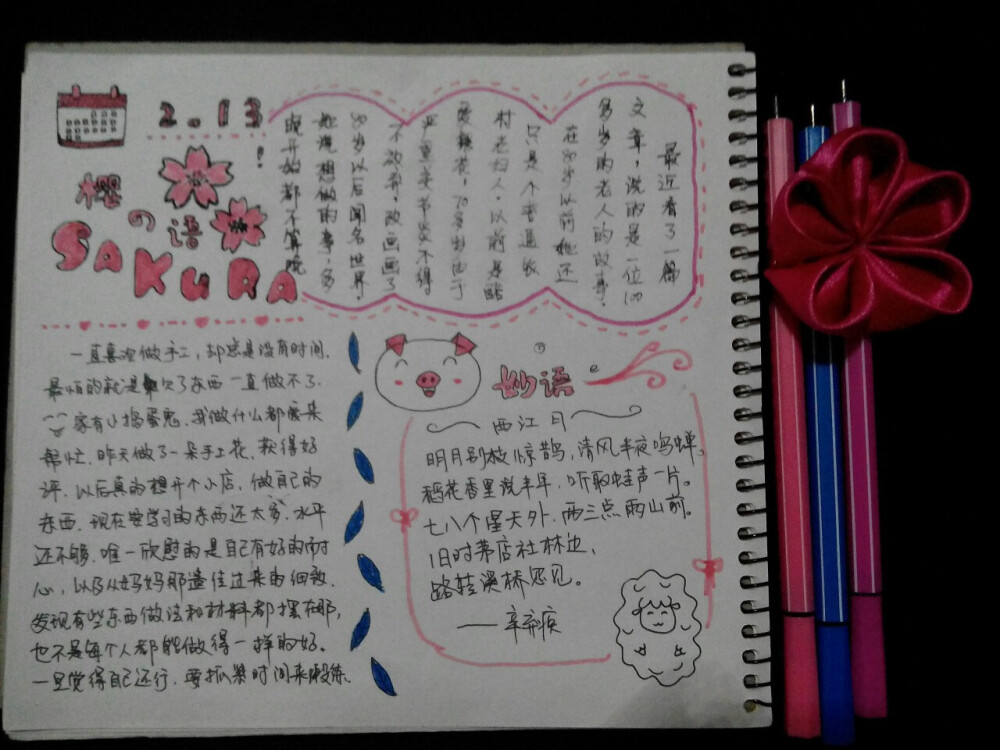 2.13
樱の语
SAKURA
最近看了一篇
文章，说的是一位100
多岁的老人的故事。
在80岁以前她还
只是个普通农
村老妇人。以前是酷
爱绣花，70多岁由于
严重关节炎不得
不放弃，改画画了
80岁以后闻名世界。
想做的事，多
晚开始都不算晚
!
一直喜欢做手工，却总是没有时间.
最烦的就是欠了东西一直做不了.
家有小捣蛋鬼.我做什么都要来
帮忙.昨天做了一朵手工花.获得好
评.以后真的想开个小店，做自己的
东西.现在要学习的东西还太多.水平
还不够.唯一欣慰的是自己有好的耐
心，以及从妈妈那遗传过来的细致.
发现有些东西做法和材料都摆在那，
也不是每个人都能做得一样的好。
一旦觉得自己还行.要抓紧时间来锻练.
妙语
西江月
明月别枝惊鹊，清风半夜鸣蝉。
稻花香里说丰年.听取蛙声一片。
七八个星天外.两三点雨山前。
旧时茅店社林边、
路转溪桥忽见。
——辛弃疾